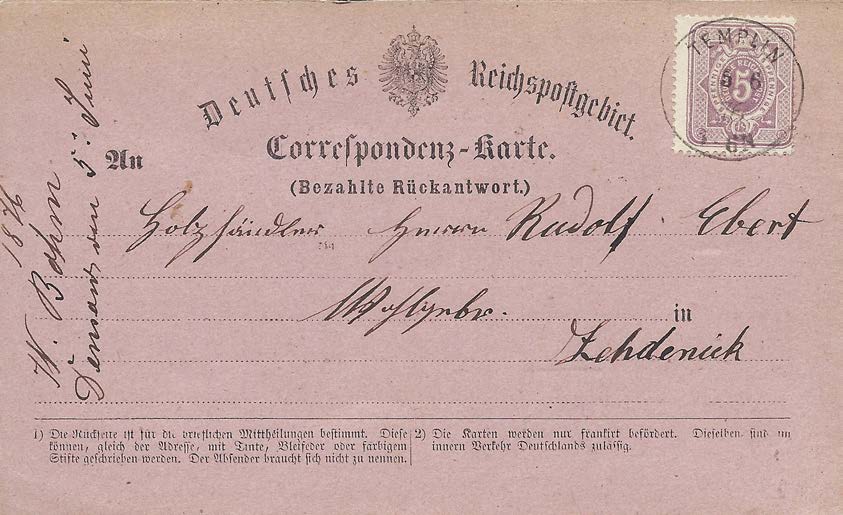 Deutsches Reichspostgebiet.
Correspondenz-Karte.
(Bezahlte Rückantwort.)
An
Holzhändler Herrn Rudolf Ebert
Wohlgebr.
in
Zehdenick
TEMPLIN
5 6
6 N
5
W. Bohm 1876
vom 5. Juni
1) Die Rückseite ist für die brieflichen Mittheilungen bestimmt. Diese
können, gleich der Adresse, mit Tinte, Bleifeder oder farbigem
Stifte geschrieben werden. Der Absender braucht sich nicht zu nennen.
2) Die Karten werden nur frankirt befördert. Dieselben sind im
innern Verkehr Deutschlands zulässig.